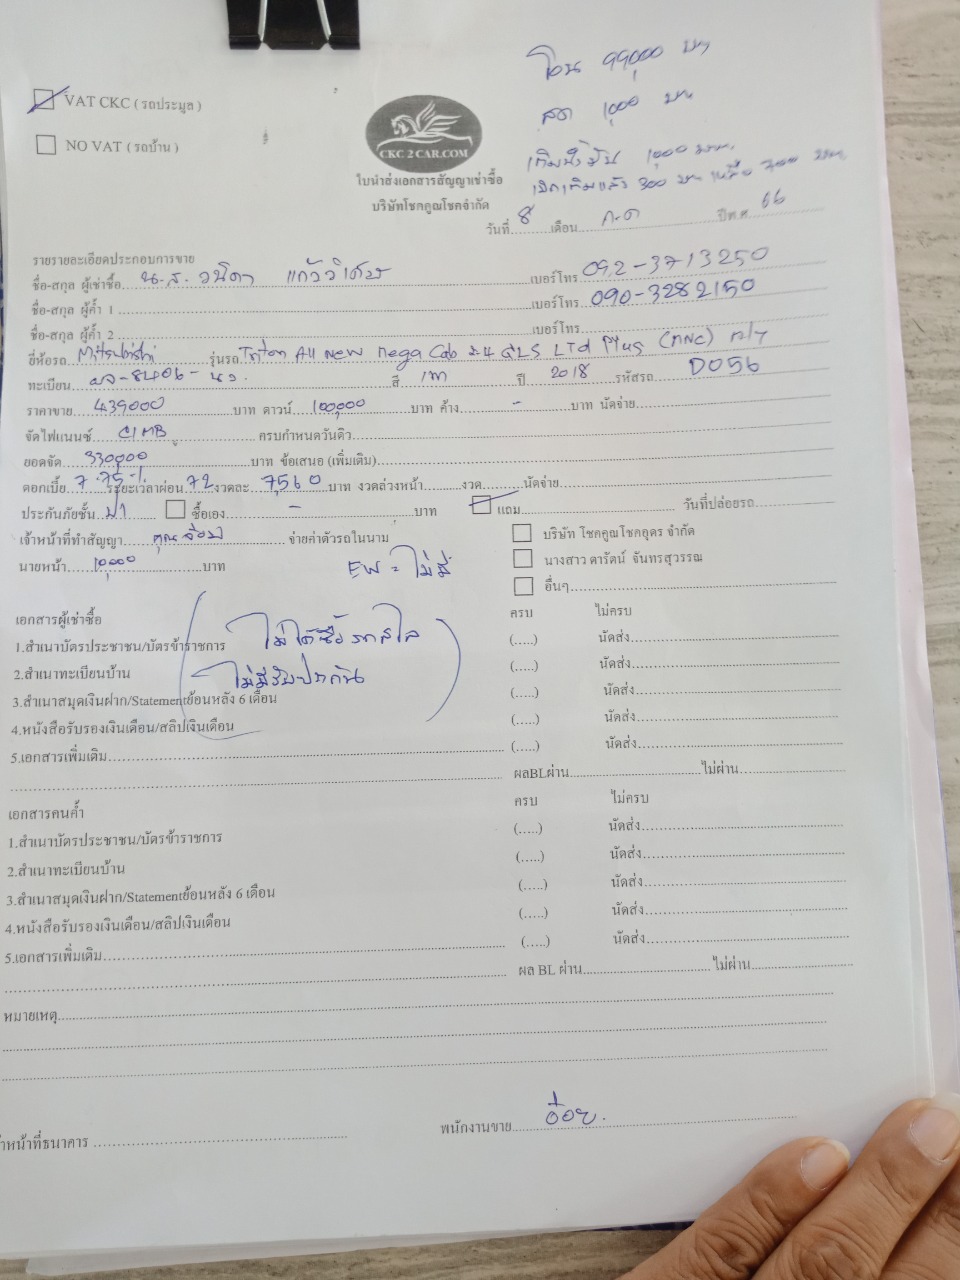 โอน 99,000 บาท
สด 1,000 บาท
VAT CKC ( รถประมูล )
NO VAT ( รถบ้าน )
CKC 2 CAR.COM
เติมน้ำมัน 1,000 บาท
เบิกเติมแล้ว 300 บาท เหลือ 700 บาท
ใบนำส่งเอกสารสัญญาเช่าซื้อ
บริษัทโชคคูณโชคจำกัด
วันที่ 8 เดือน ก.ค ปีพ.ศ. 66
รายรายละเอียดประกอบการขาย
ชื่อ-สกุล ผู้เช่าซื้อ น.ส. วนิดา แก้ววิเศษ เบอร์โทร 092-3713250
ชื่อ-สกุล ผู้ค้ำ 1 เบอร์โทร 090-3282150
ชื่อ-สกุล ผู้ค้ำ 2 เบอร์โทร
ยี่ห้อรถ Mitsubishi รุ่นรถ Triton All New Mega Cab 2.4 GLS Ltd Plus (MNC) M/T
ทะเบียน 8406 สี เทา ปี 2018 รหัสรถ D056
ราคาขาย 439000 บาท ดาวน์ 100,000 บาท ค้าง - บาท นัดจ่าย
จัดไฟแนนซ์ CIMB ครบกำหนดวันดิว
ยอดจัด 339,000 บาท ข้อเสนอ (เพิ่มเติม)
ดอกเบี้ย 7.75% ระยะเวลาผ่อน 72 งวดละ 7,560 บาท งวดล่วงหน้า งวด นัดจ่าย
ประกันภัยชั้น ป1 ซื้อเอง - บาท แถม วันที่ปล่อยรถ
เจ้าหน้าที่ทำสัญญา คุณ จ่ายค่าตัวรถในนาม บริษัท โชคคูณโชคอุดร จำกัด
นางสาว ดารัตน์ จันทรสุวรรณ
นายหน้า 10,000 บาท EW = ไม่มี อื่นๆ
เอกสารผู้เช่าซื้อ ครบ ไม่ครบ
1.สำเนาบัตรประชาชน/บัตรข้าราชการ (.....) นัดส่ง
ไม่ได้ซื้อรถสไล
2.สำเนาทะเบียนบ้าน (.....) นัดส่ง
ไม่มีรับประกัน
3.สำเนาสมุดเงินฝาก/Statementย้อนหลัง 6 เดือน (.....) นัดส่ง
4.หนังสือรับรองเงินเดือน/สลิปเงินเดือน (.....) นัดส่ง
5.เอกสารเพิ่มเติม (.....) นัดส่ง
ผลBLผ่าน ไม่ผ่าน
เอกสารคนค้ำ ครบ ไม่ครบ
1.สำเนาบัตรประชาชน/บัตรข้าราชการ (.....) นัดส่ง
2.สำเนาทะเบียนบ้าน (.....) นัดส่ง
3.สำเนาสมุดเงินฝาก/Statementย้อนหลัง 6 เดือน (.....) นัดส่ง
4.หนังสือรับรองเงินเดือน/สลิปเงินเดือน (.....) นัดส่ง
5.เอกสารเพิ่มเติม (.....) นัดส่ง
ผล BL ผ่าน ไม่ผ่าน
หมายเหตุ
าหน้าที่ธนาคาร พนักงานขาย อ้อย.